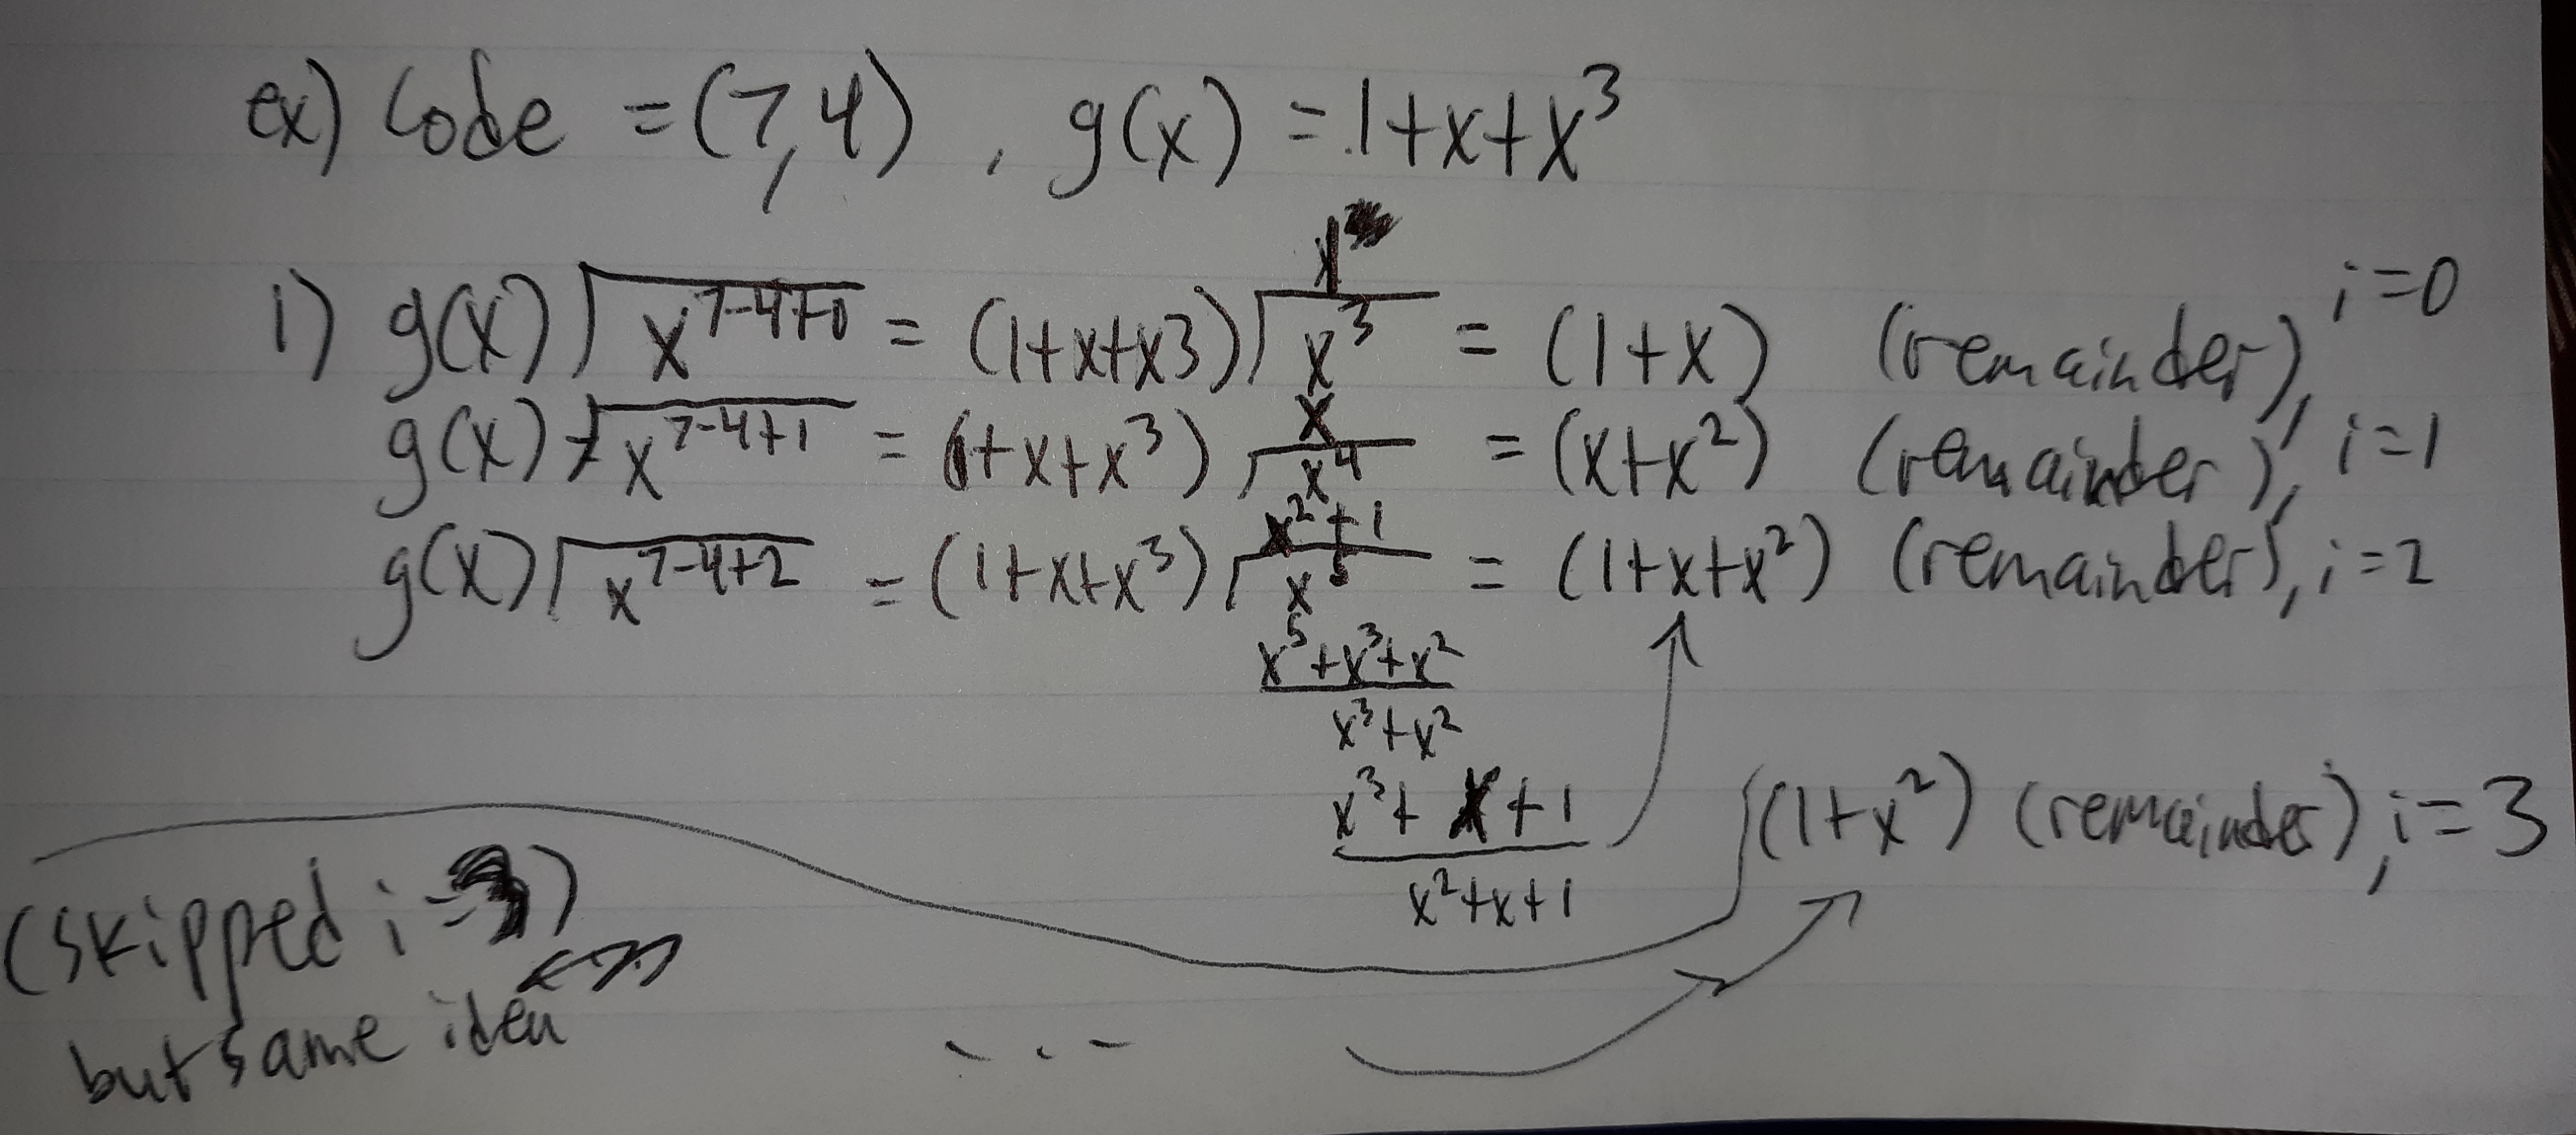 ex) Code = (7,4) , g(x) = 1+x+x³
x
i) g(x) x⁷⁻⁴⁺⁰ = (1+x+x3) x³ = (1+x) (remainder), i=0
x
g(x) x⁷⁻⁴⁺¹ = (1+x+x³) x⁴ = (x+x²) (remainder), i=1
x²+1
g(x) x⁷⁻⁴⁺² = (1+x+x³) x⁵ = (1+x+x²) (remainder), i=2
x⁵+x³+x²
x³+x²
x³+x+1
x²+x+1
(1+x²) (remainder), i=3
(skipped i=3)
but same idea
...